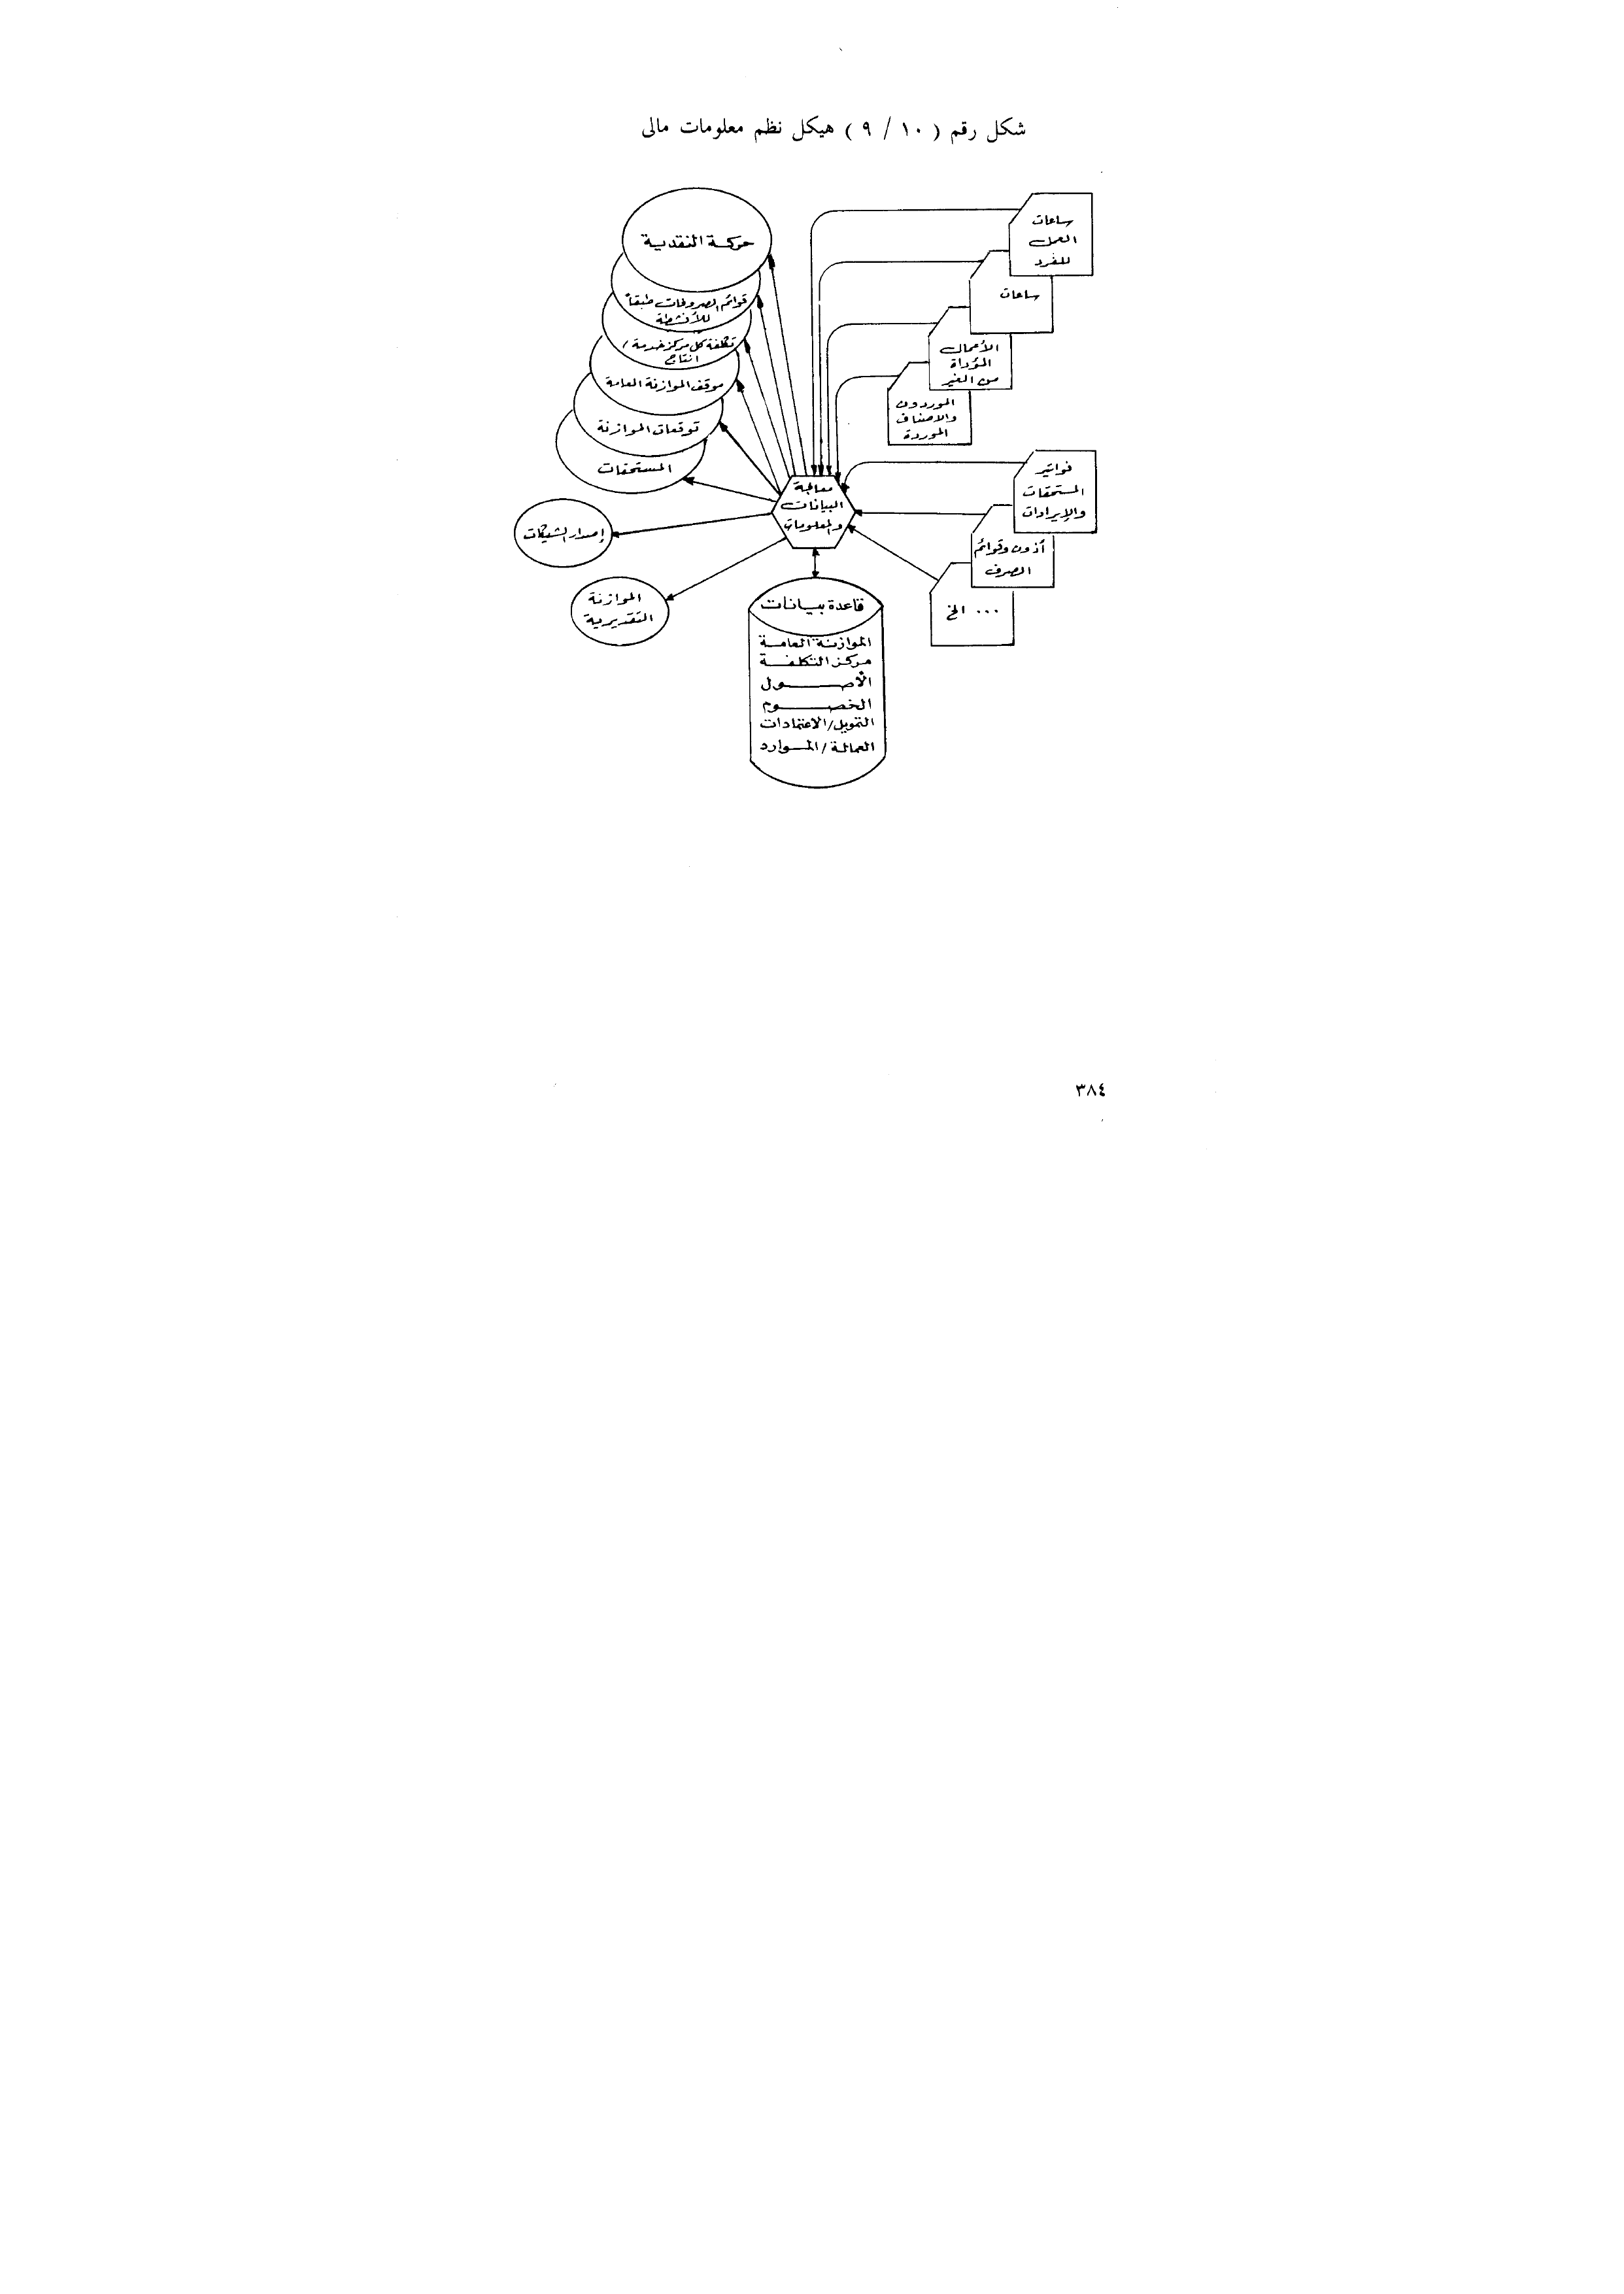 شكل رقم ( ١٠ / ٩ ) هيكل نظم معلومات مالى
ساعات
العمل
للفرد
ساعات
الأعمال
المؤداة
من الغير
الموردون
والاصناف
الموردة
فواتير
المستحقات
والإيرادات
أذون وقوائم
الصرف
... الخ
معالجة
البيانات
والمعلومات
حركة النقدية
قوائم المصروفات طبقاً
للأنشطة
تكلفة كل مركز خدمة /
انتاج
موقف الموازنة العامة
توقعات الموازنة
المستحقات
إصدار الشيكات
الموازنة
التقديرية
قاعدة بيانات
الموازنة العامة
مركز التكلفة
الأصول
الخصوم
التمويل/الاعتمادات
العمالة/الموارد
٣٨٤